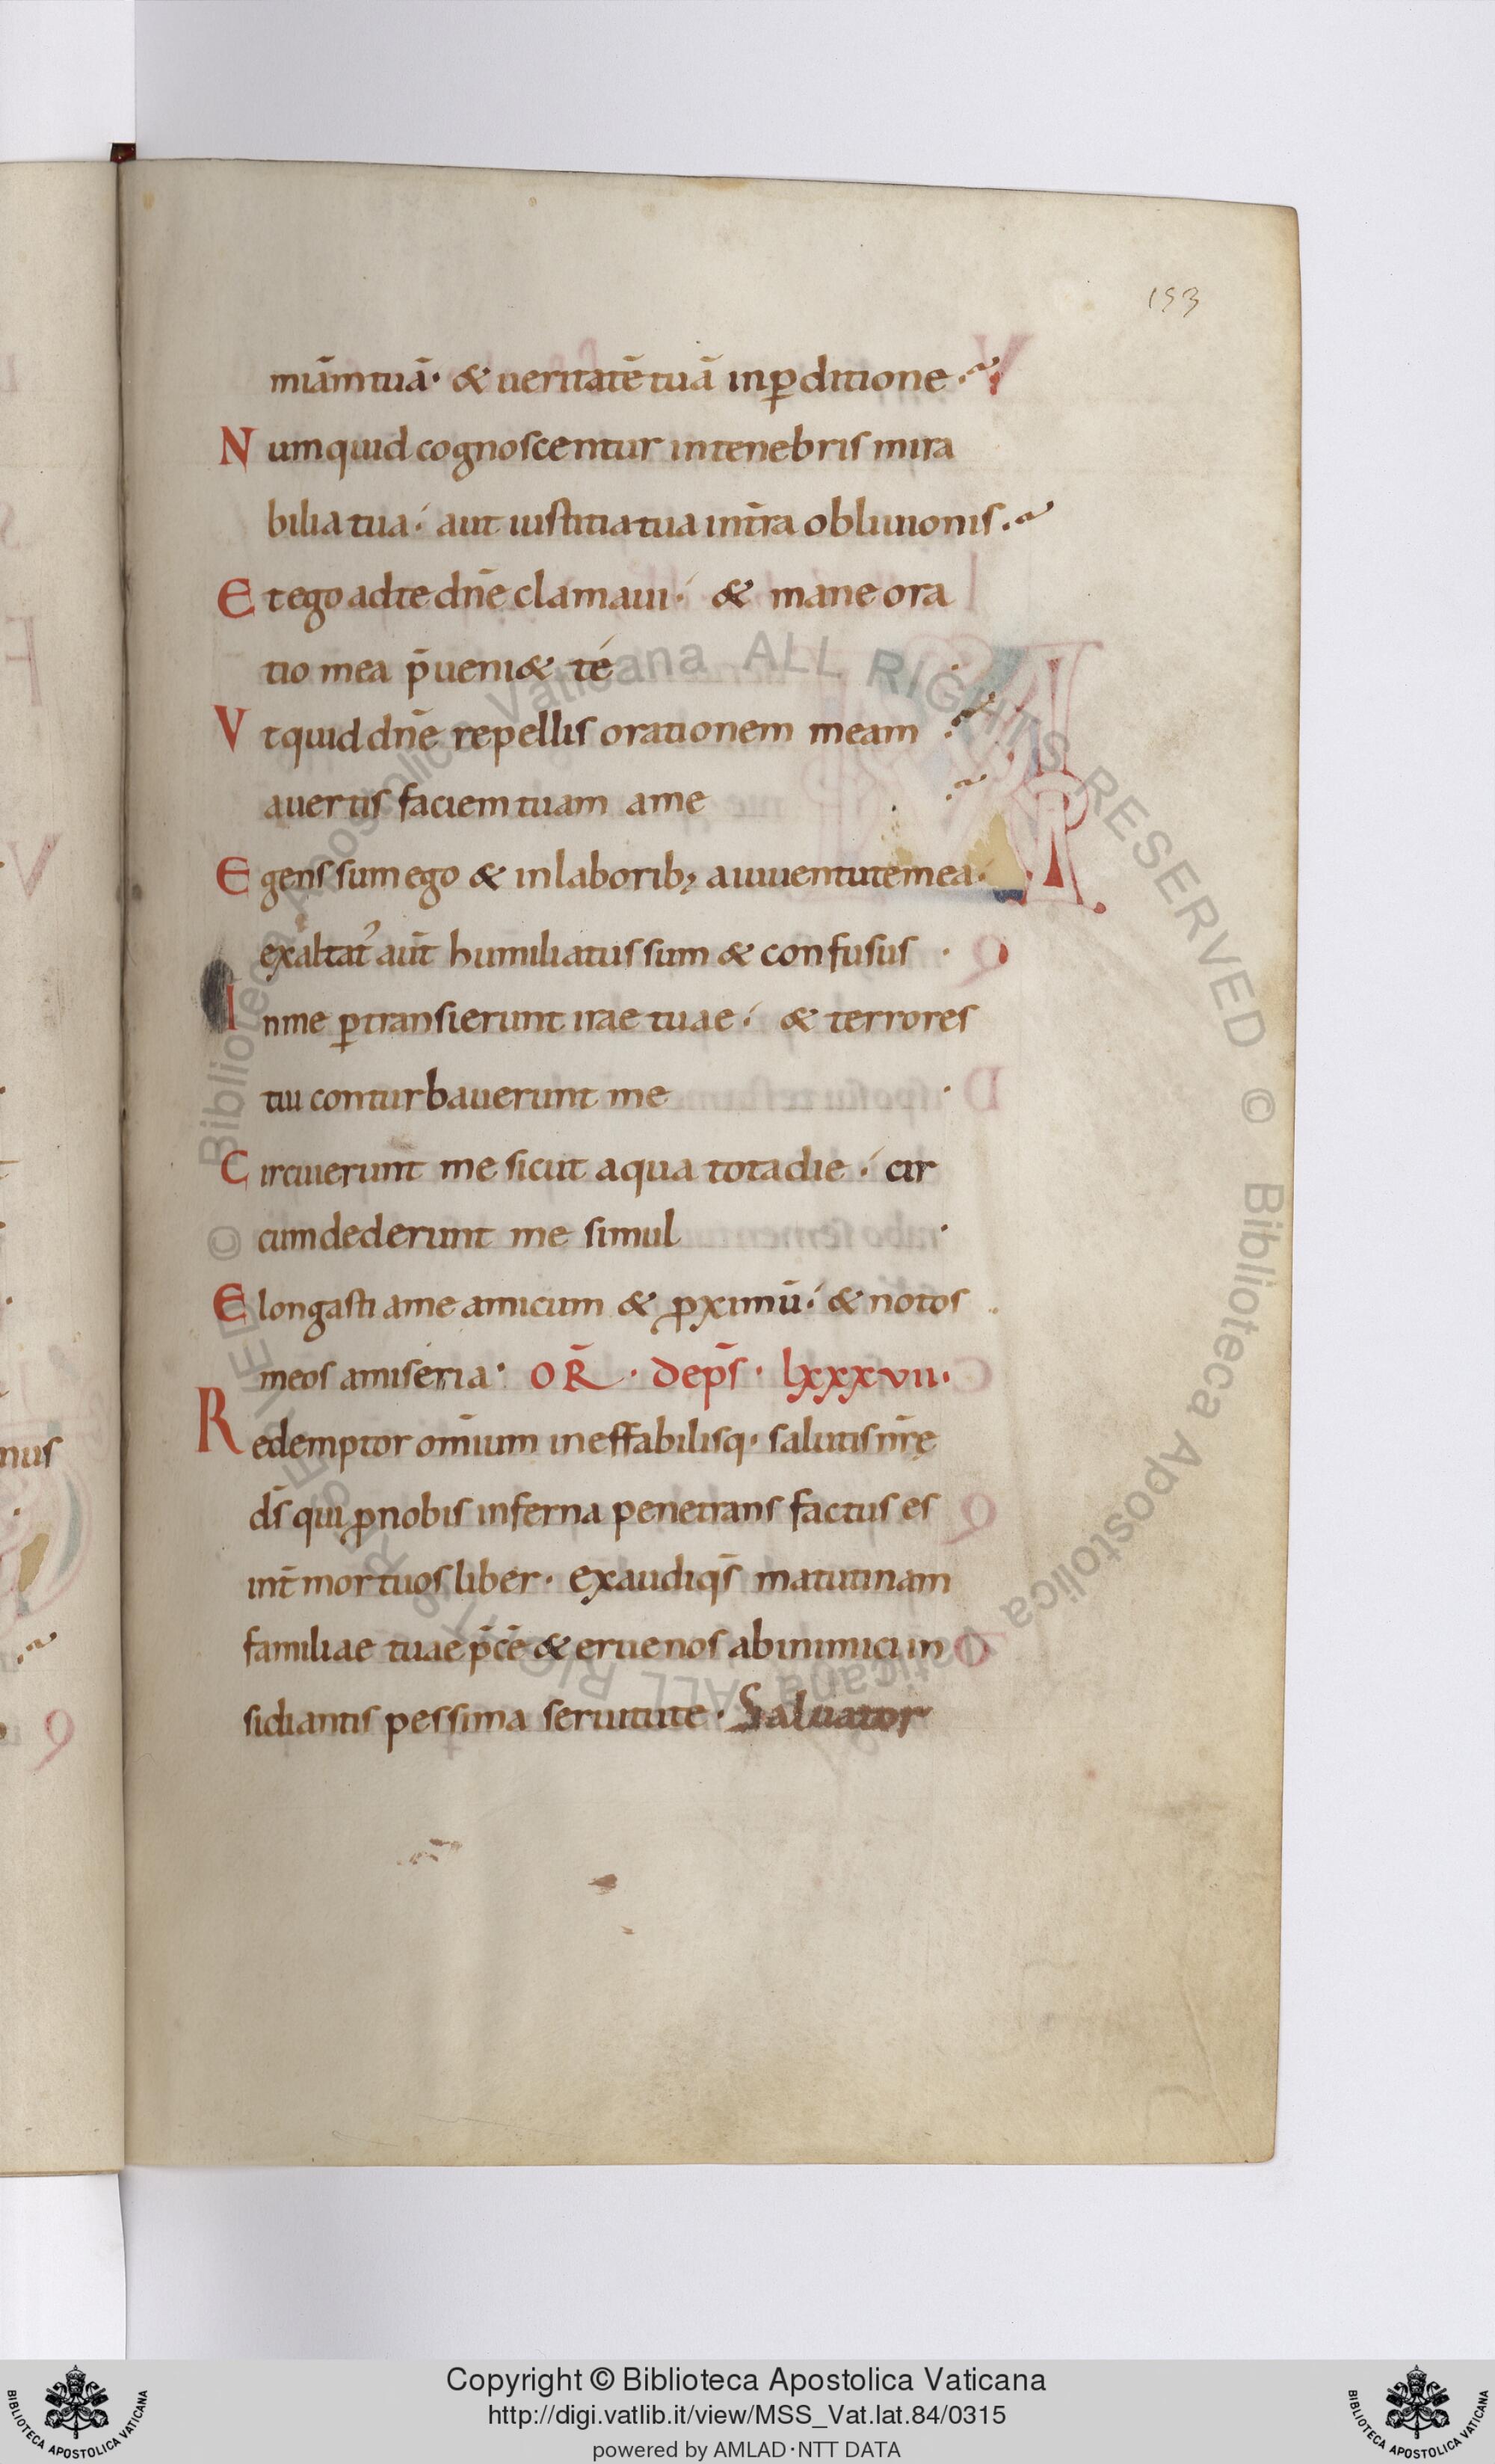 153
miām tuā· & ueritatē tuā inꝑditione·
Numquid cognoscentur intenebris mira
bilia tua· aut iustitia tua int̄ra obliuionis·
Et ego adte dn̄e clamaui· & mane ora
tio mea p̄ueni& té
Vtquid dn̄e repellis orationem meam
auertis faciem tuam ame
Egens sum ego & inlaborib; aiuuentute mea·
exaltat᾽ aut̄ humiliatus sum & confusus ·
Inme ꝑtransierunt irae tuae· & terrores
tui conturbauerunt me ·
Circuierunt me sicut aqua tota die· cir
cumdederunt me simul ·
Elongasti ame amicum & ꝓximū· & notos
meos amiseria· OR̄· dep̄s· lxxxvii·
Redemptor om̄ium ineffabilisq· salutis nr̄ę
ds̄ qui ꝓnobis inferna penetrans factus es
int̄ mortuos liber· exaudi qs̄ matutinam
familiae tuae p̄cē & erue nos abinimici in
sidiantis pessima seruitute· Saluator
© Biblioteca Apostolica Vaticana ALL RIGHTS RESERVED
© Biblioteca Apostolica Vaticana ALL RIGHTS RESERVED
Copyright © Biblioteca Apostolica Vaticana
http://digi.vatlib.it/view/MSS_Vat.lat.84/0315
powered by AMLAD·NTT DATA
BIBLIOTECA APOSTOLICA VATICANA
BIBLIOTECA APOSTOLICA VATICANA